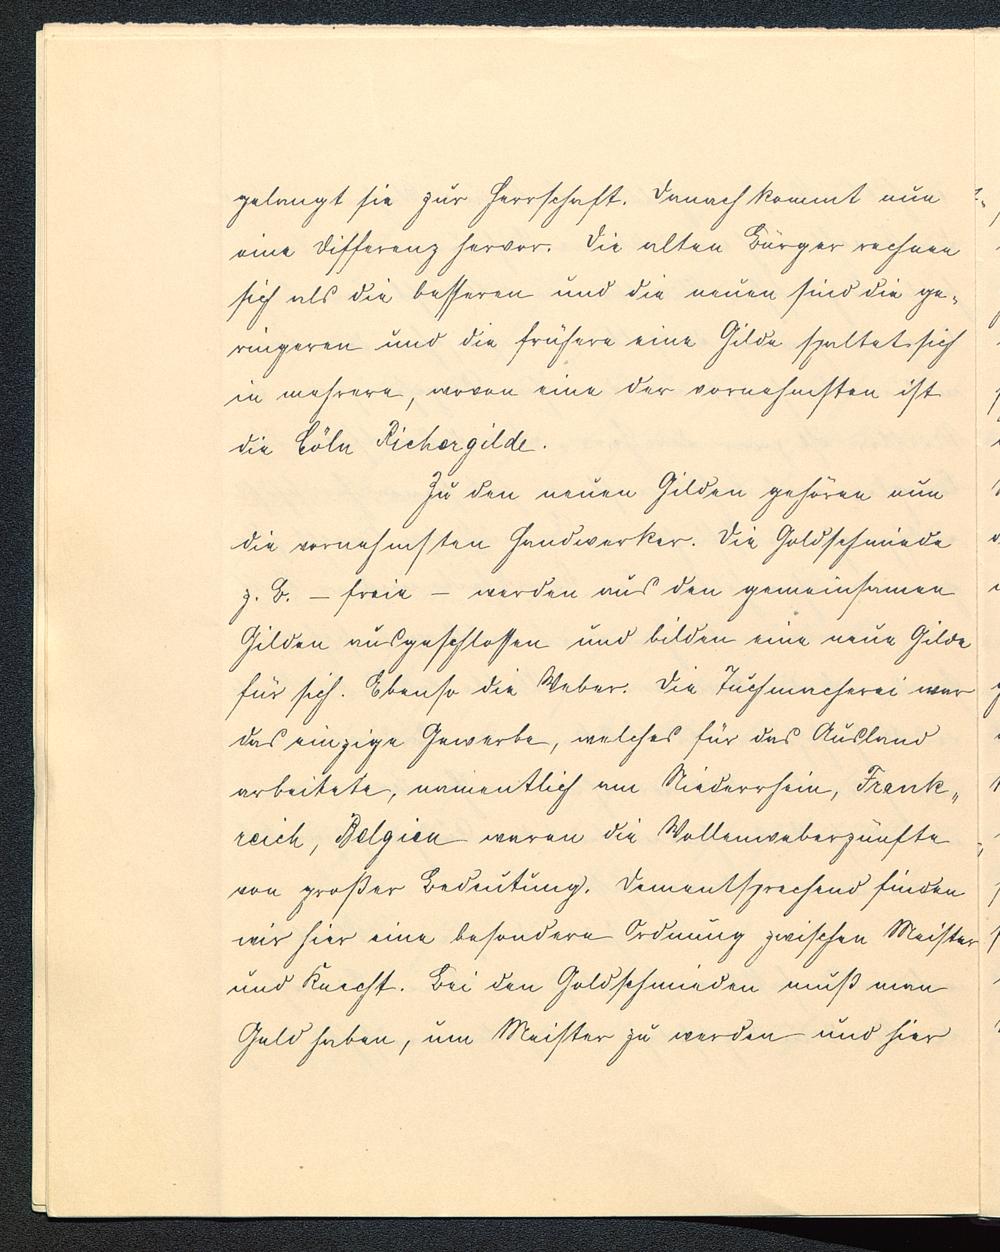 gelangt sie zur Herrschaft. Danach kommt nun
eine Differenz hervor. Die alten Bürger rechnen
sich als die besseren und die neuen sind die ge-
ringeren und die frühere eine Gilde spaltet sich
in mehrere, wovon eine der vornehmsten ist
die Cöln Richergilde.
Zu den neuen Gilden gehören nun
die vornehmsten Handwerker. Die Goldschmiede
z. B. – freie – werden aus den gemeinsamen
Gilden ausgeschlossen und bilden eine neue Gilde
für sich. Ebenso die Weber. Die Tuchmacherei war
das einzige Gewerbe, welches für das Ausland
arbeitete, namentlich am Niederrhein, Frank-
reich, Belgien waren die Wollenweberzünfte
von großer Bedeutung. Dementsprechend finden
wir hier eine besondere Ordnung zwischen Meister
und Knecht. Bei den Goldschmieden muß man
Geld haben, um Meister zu werden und hier